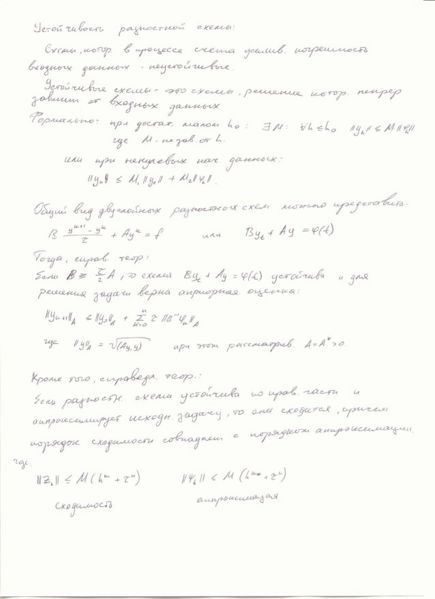 Устойчивость разностной схемы:
Схемы, котор. в процессе счета усилив. погрешность
входных данных - неустойчивые.
Устойчивые схемы - это схемы, решение котор. непрер
зависит от входных данных
Формально: при достат. малом h₀: ∃ M: ∀h ≤ h₀ ||yₕ|| ≤ M||φₕ||
где M - независ от h.
или при ненулевых нач. данных:
||yₙ|| ≤ M₁||y₀|| + M₂||φₕ||.
Общий вид двуслойных разностных схем можно представить:
B (yⁿ⁺¹ - yⁿ)/τ + Ayⁿ = f или Byₜ + Ay = φ(t)
Тогда, справ. теор:
Если B ≥ τ/2 A, то схема Byₜ + Ay = φ(t) устойчива и для
решения задачи верна априорная оценка:
||yₙ₊₁||_A ≤ ||y₀||_A + Σ τ||B⁻¹φₙ||_A
где ||y||_A = √(Ay,y) при этом рассматрив. A = A* > 0
Кроме того, справедл. теор.:
Если разностн. схема устойчива по прав. части и
аппроксимирует исходн. задачу, то она сходится, причем
порядок сходимости совпадает с порядком аппроксимации,
где
||Zₕ|| ≤ M(hᵐ + τⁿ) ||Ψₕ|| ≤ M(hᵐ + τⁿ)
сходимость аппроксимация